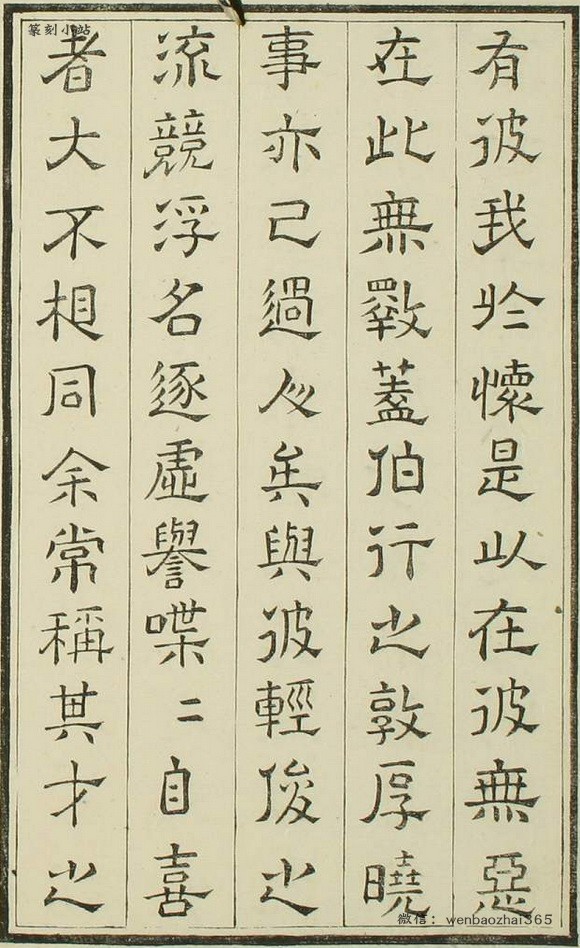 篆刻小站
有彼我於懷是以在彼無惡
在此無斁蓋伯行之敦厚曉
事亦已過人矣與彼輕俊之
流競浮名逐虛譽喋二自喜
者大不相同余常稱其才之
微信：wenbaozhai365